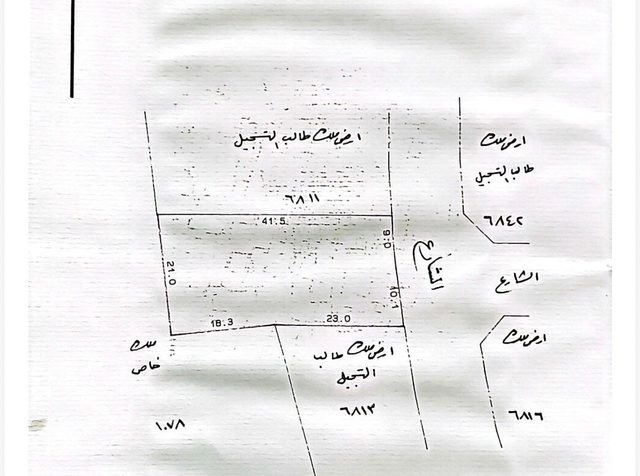 ارض ملك طالب التسجيل
٦٨١١
ارض ملك
طالب التسجيل
٦٨٤٢
41.5
9.0
21.0
الشارع
الشارع
10.1
18.3
23.0
ملك
خاص
ارض ملك طالب
التسجيل
٦٨١٣
ارض ملك
٦٨١٦
١٠٧٨